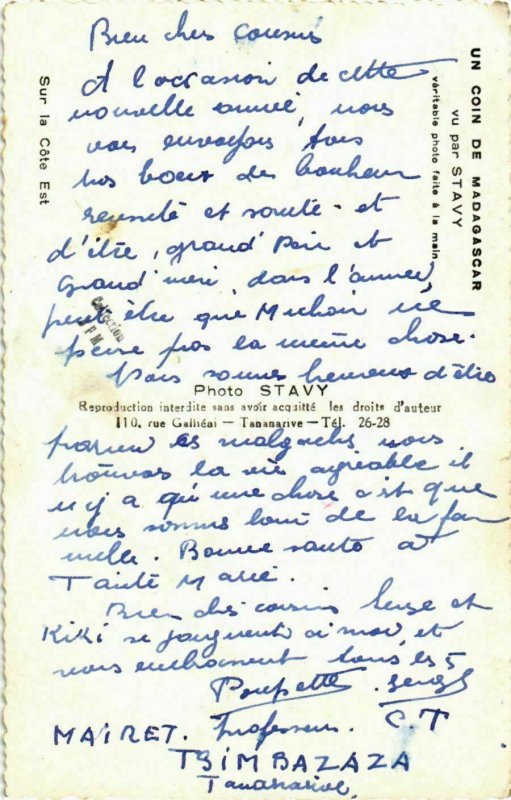 Bien chers cousins
A l'occasion de cette
nouvelle année, nous
vous envoyons tous
nos voeux de bonheur
reussite et santé - et
d'être, grand' Père et
Grand' mère, dans l'année,
peut être que Michou ne
pense pas la même chose.
Nous sommes heureux d'être
Photo STAVY
Reproduction interdite sans avoir acquitté les droits d'auteur
110, rue Galliéni — Tananarive — Tél. 26-28
parmi les malgaches nous
trouvons la vie agréable il
n'y a qu'une chose c'est que
nous sommes loin de la fa
mille. Bonne santé à
Tante Marie.
Bien chers cousins Serge et
Kiki se joignent à moi et
vous embrassent tous les 5
Poupette. Serge
MAIRET. Professeur. C.T
TSIMBAZAZA
Tananarive
UN COIN DE MADAGASCAR
vu par STAVY
véritable photo faite à la main
Sur la Côte Est
Collection